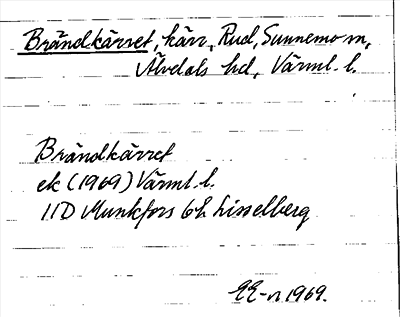 Brändkärret, kärr, Rud, Sunnemo sn,
Älvdals hd, Värml. l.
Brändkärret
ek (1969) Värml. l.
11D Munkfors 6h Lisselberg
1969.